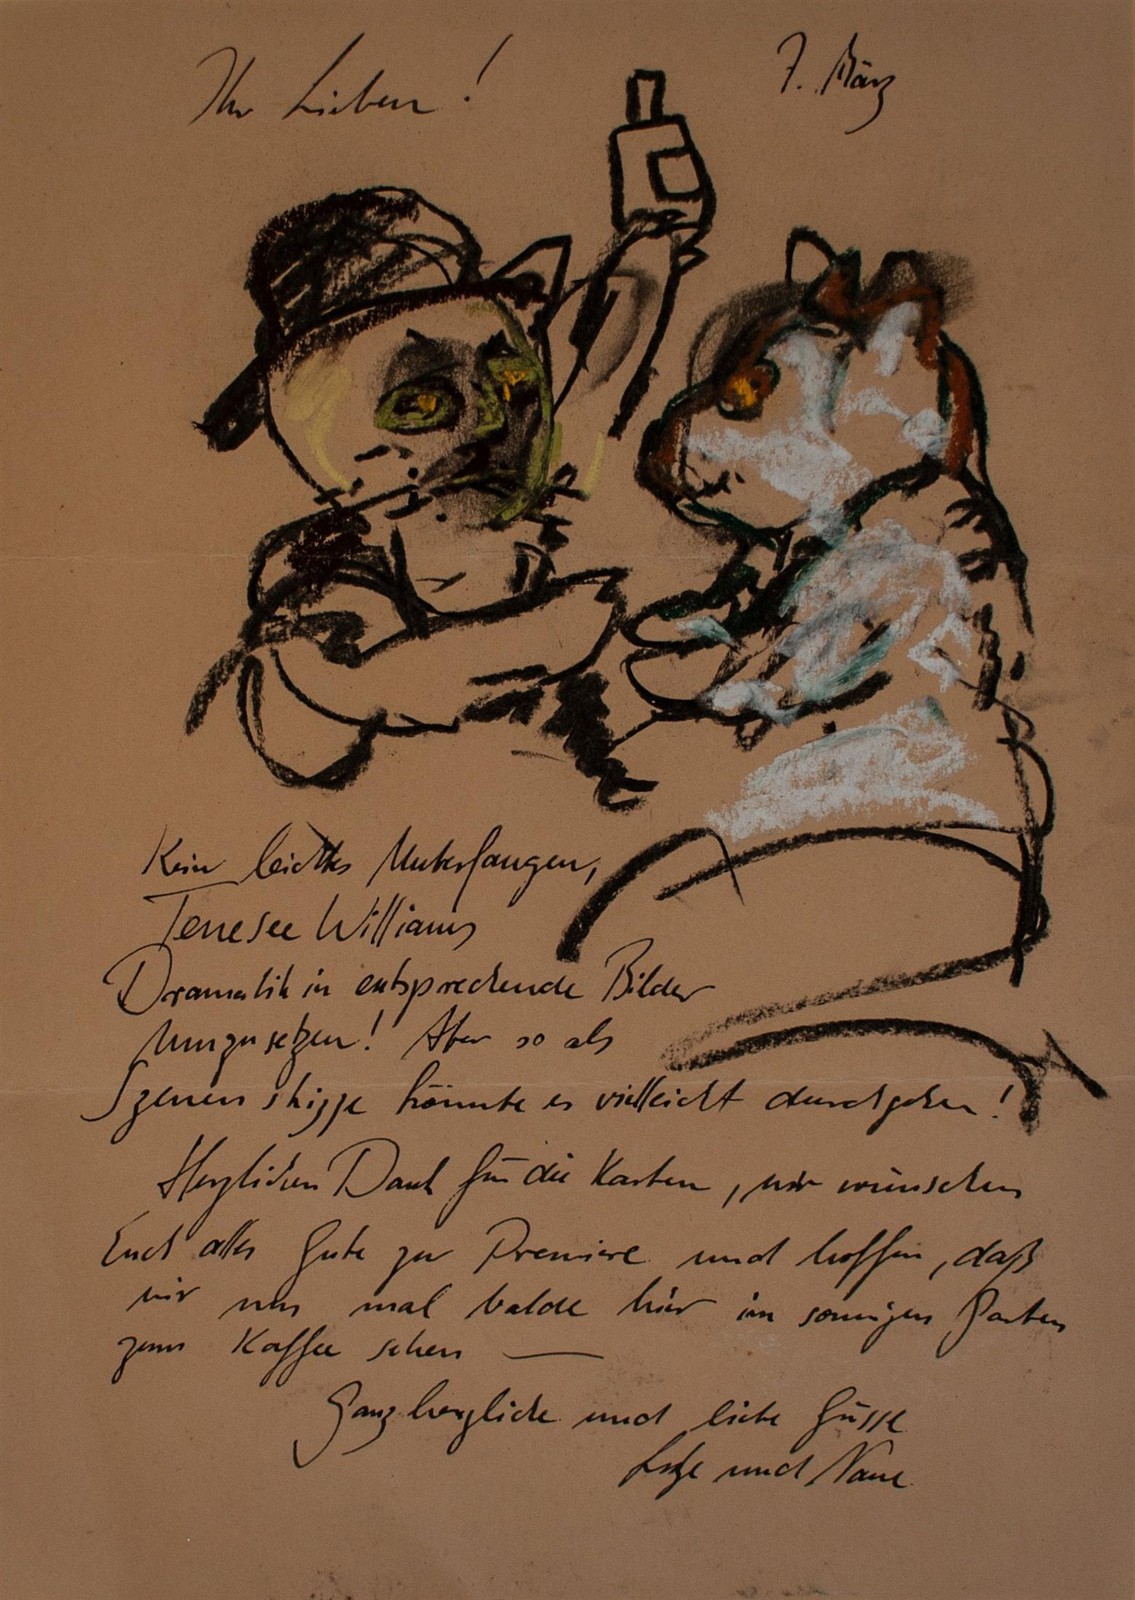 Ihr Lieben!
7. März
Kein leichtes Unterfangen,
Tenesee Williams
Dramatik in entsprechende Bilder
umzusetzen! Aber so als
Szenenskizze könnte es vielleicht durchgehen!
Herzlichen Dank für die Karten, wir wünschen
Euch alles Gute zur Premiere und hoffen, daß
wir uns mal balde hier im sonnigen Garten
zum Kaffee sehen —
Ganz herzliche und liebe Grüsse
und